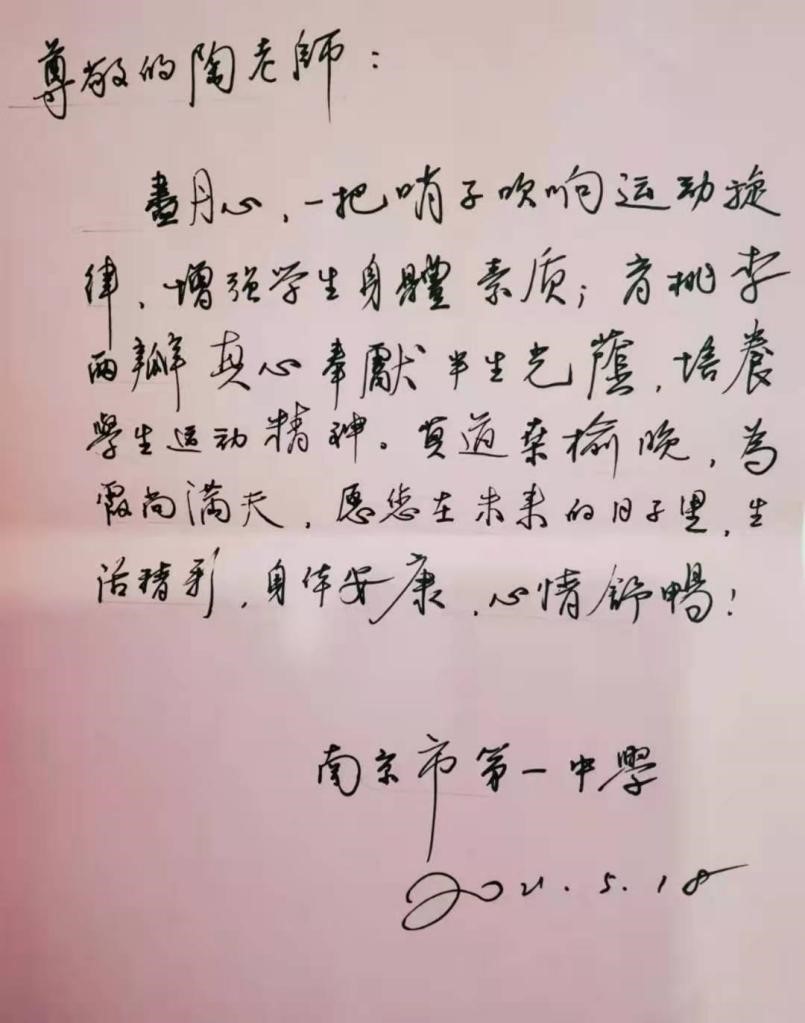 尊敬的陶老師：
盡丹心，一把哨子吹响运动旋
律，增强学生身體素质；育桃李
两瓣真心奉獻半生光蔭，培養
學生运动精神。莫道桑榆晚，為
霞尚满天，愿您在未来的日子里，生
活精彩，身体安康，心情舒暢！
南京市第一中學
2021.5.18